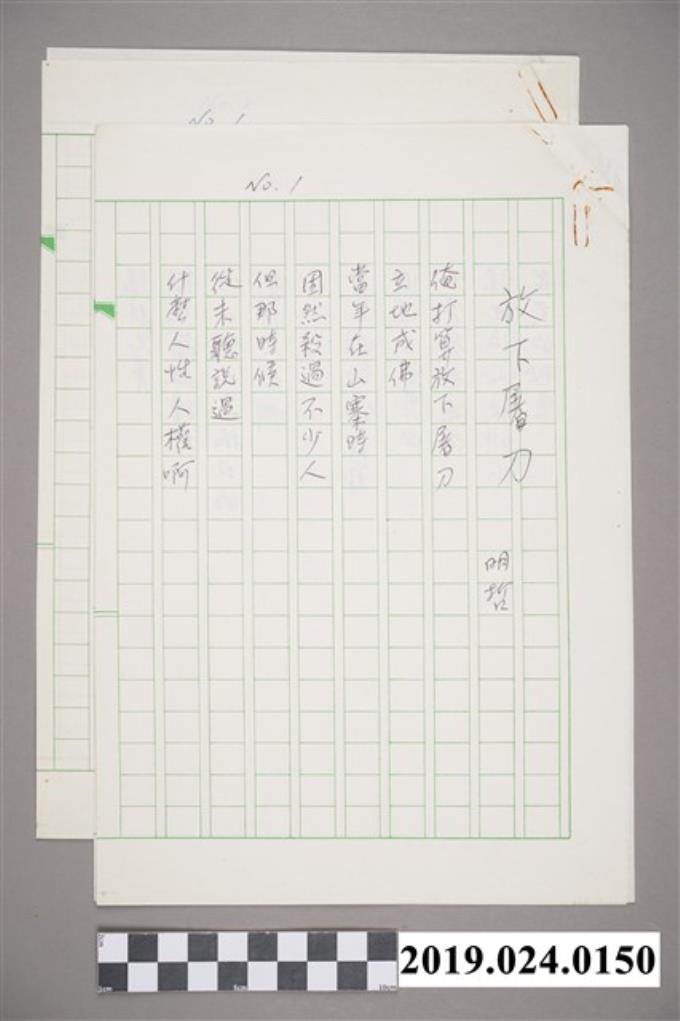 No. 1
No. 1
放下屠刀
明哲
俺打算放下屠刀
立地成佛
當年在山寨時
固然殺過不少人
但那時候
從未聽說過
什麼人性人權啊
2cm
5cm
10cm
2019.024.0150